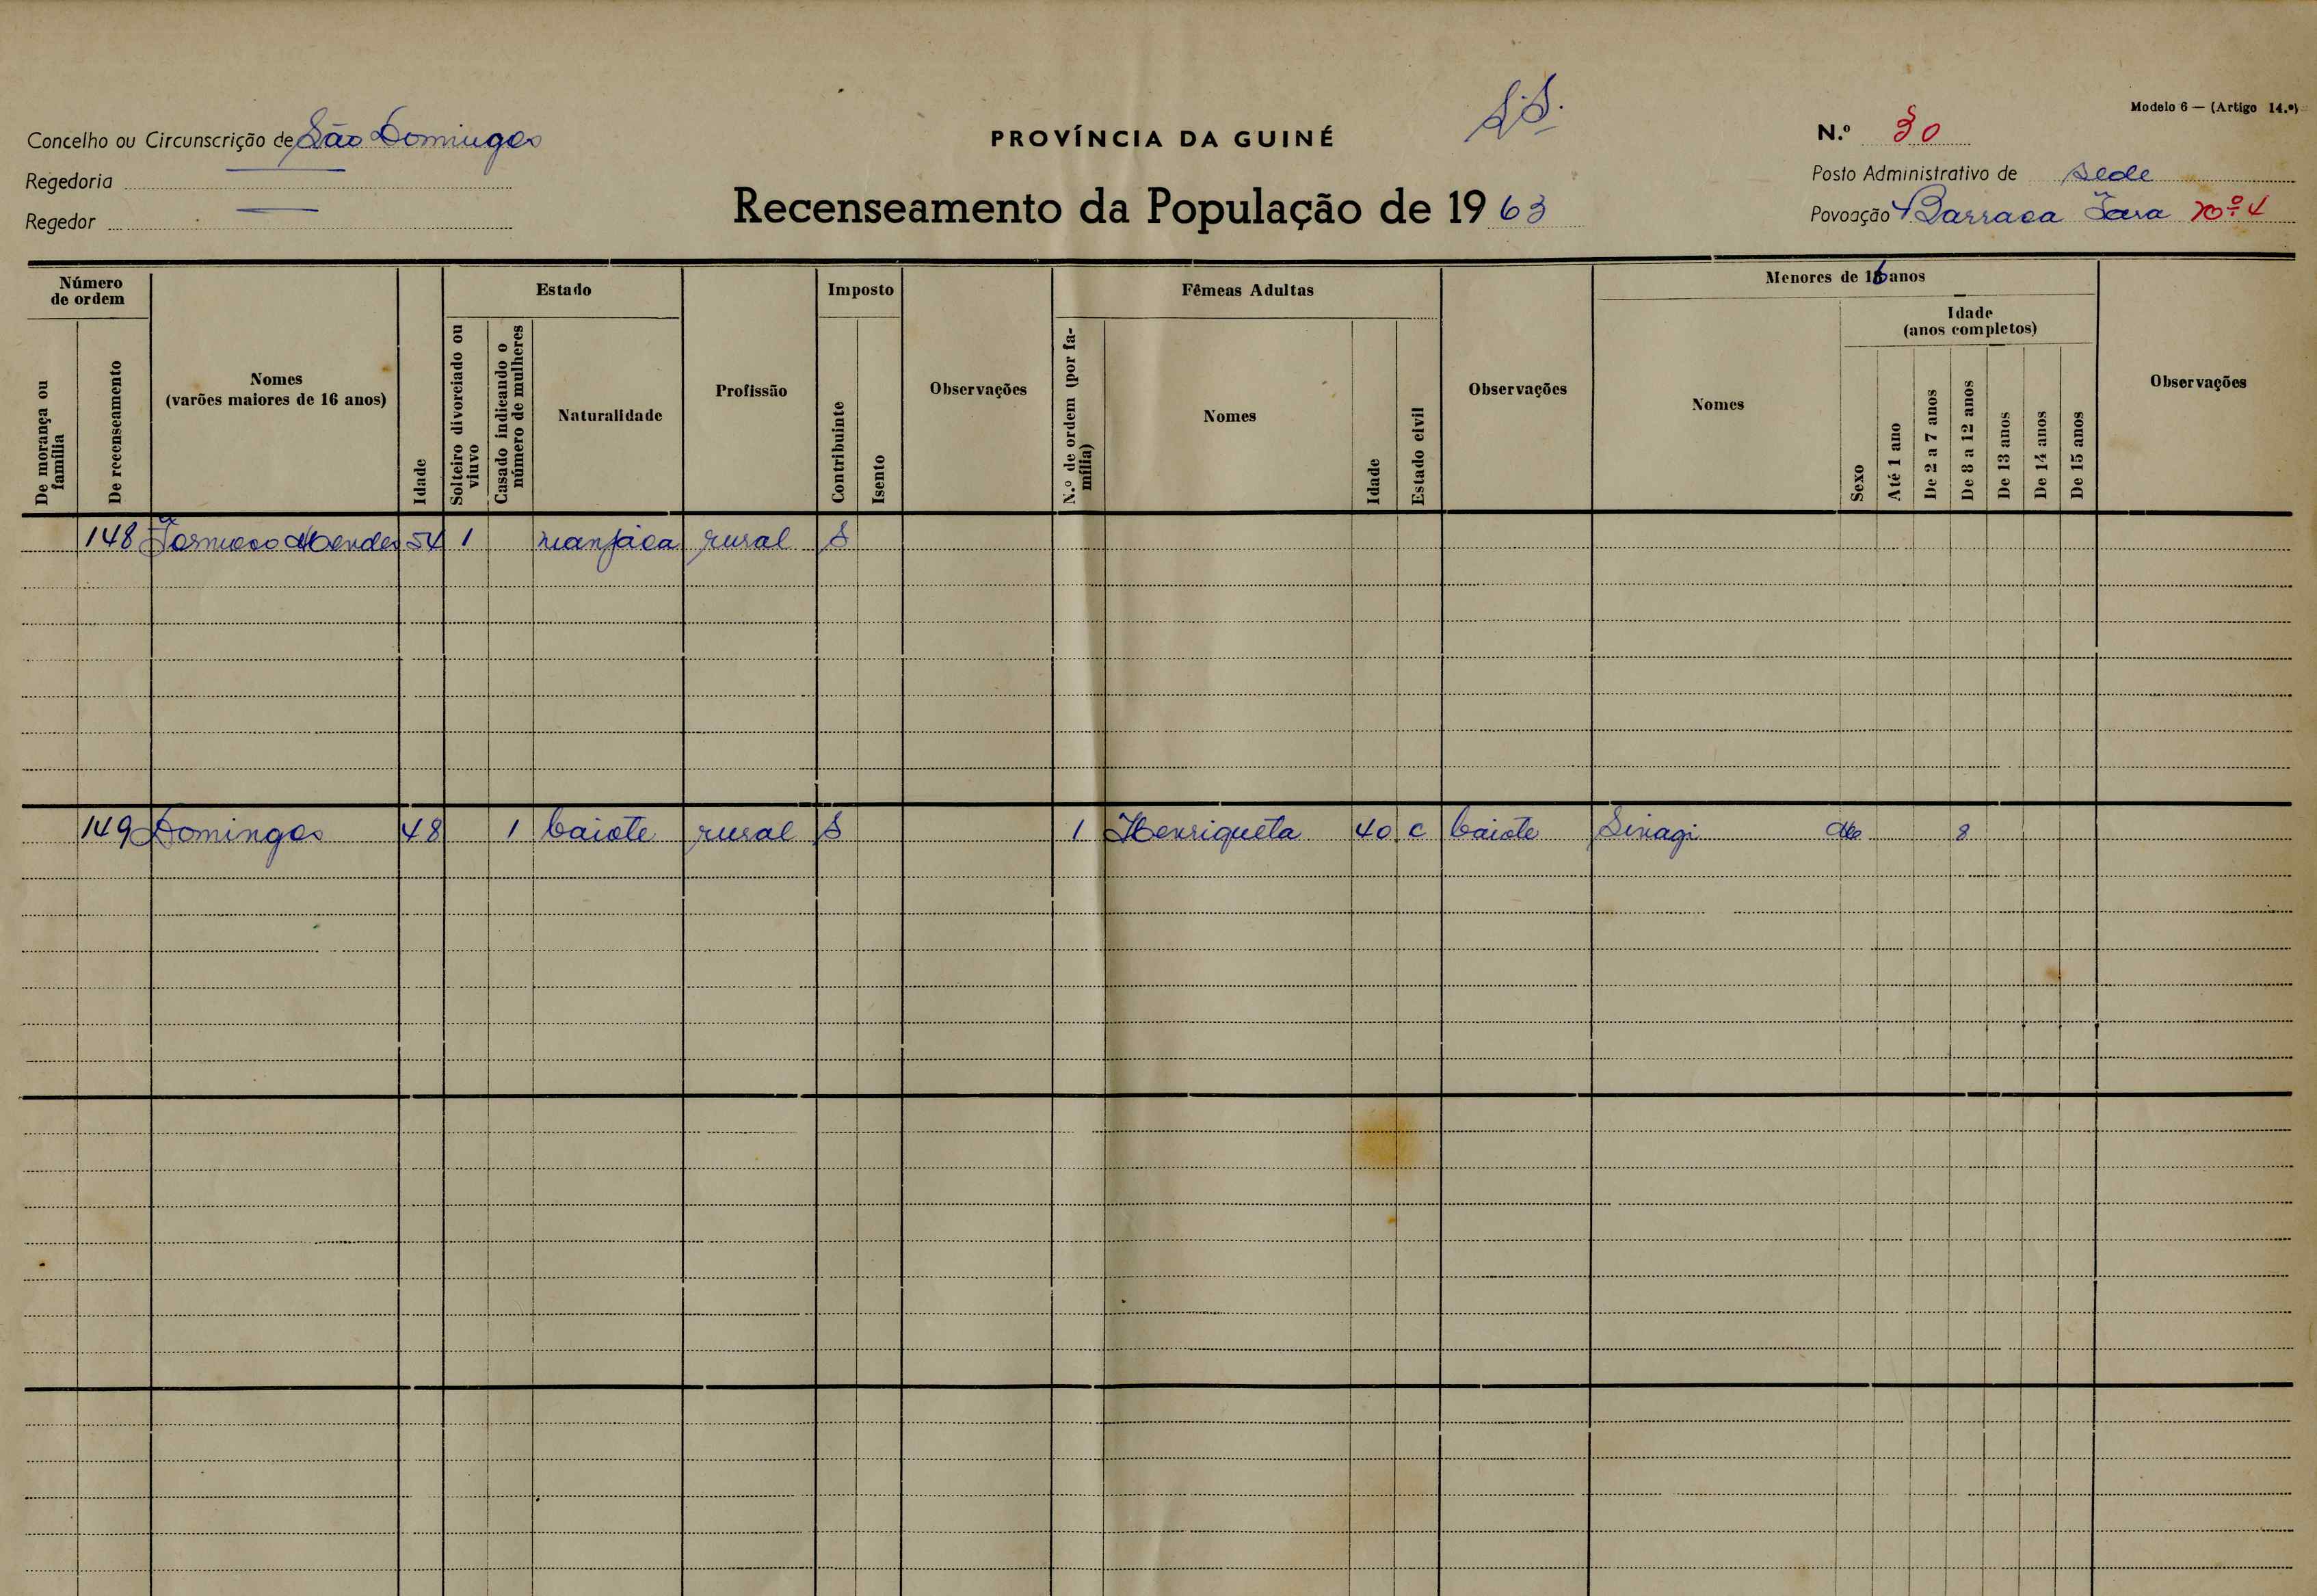 S.S.
Modelo 6 — (Artigo 14.º)
Concelho ou Circunscrição de São Domingos
PROVÍNCIA DA GUINÉ
N.º 30
Regedoria —
Posto Administrativo de Sede
Regedor —
Recenseamento da População de 1963
Povoação Barraca nº 4
Número de ordem
De morança ou família
De recenseamento
Nomes
(varões maiores de 16 anos)
Idade
Estado
Solteiro divorciado ou viuvo
Casado indicando o número de mulheres
Naturalidade
Profissão
Imposto
Contribuinte
Isento
Observações
Fêmeas Adultas
N.º de ordem (por família)
Nomes
Idade
Estado civil
Observações
Menores de 16 anos
Nomes
Sexo
Idade
(anos completos)
Até 1 ano
De 2 a 7 anos
De 8 a 12 anos
De 13 anos
De 14 anos
De 15 anos
Observações
148 Mendes 54 1 manjaca rural S
149 Domingos 48 1 baiote rural S 1 Henriqueta 40 c baiote Sinagi M 8